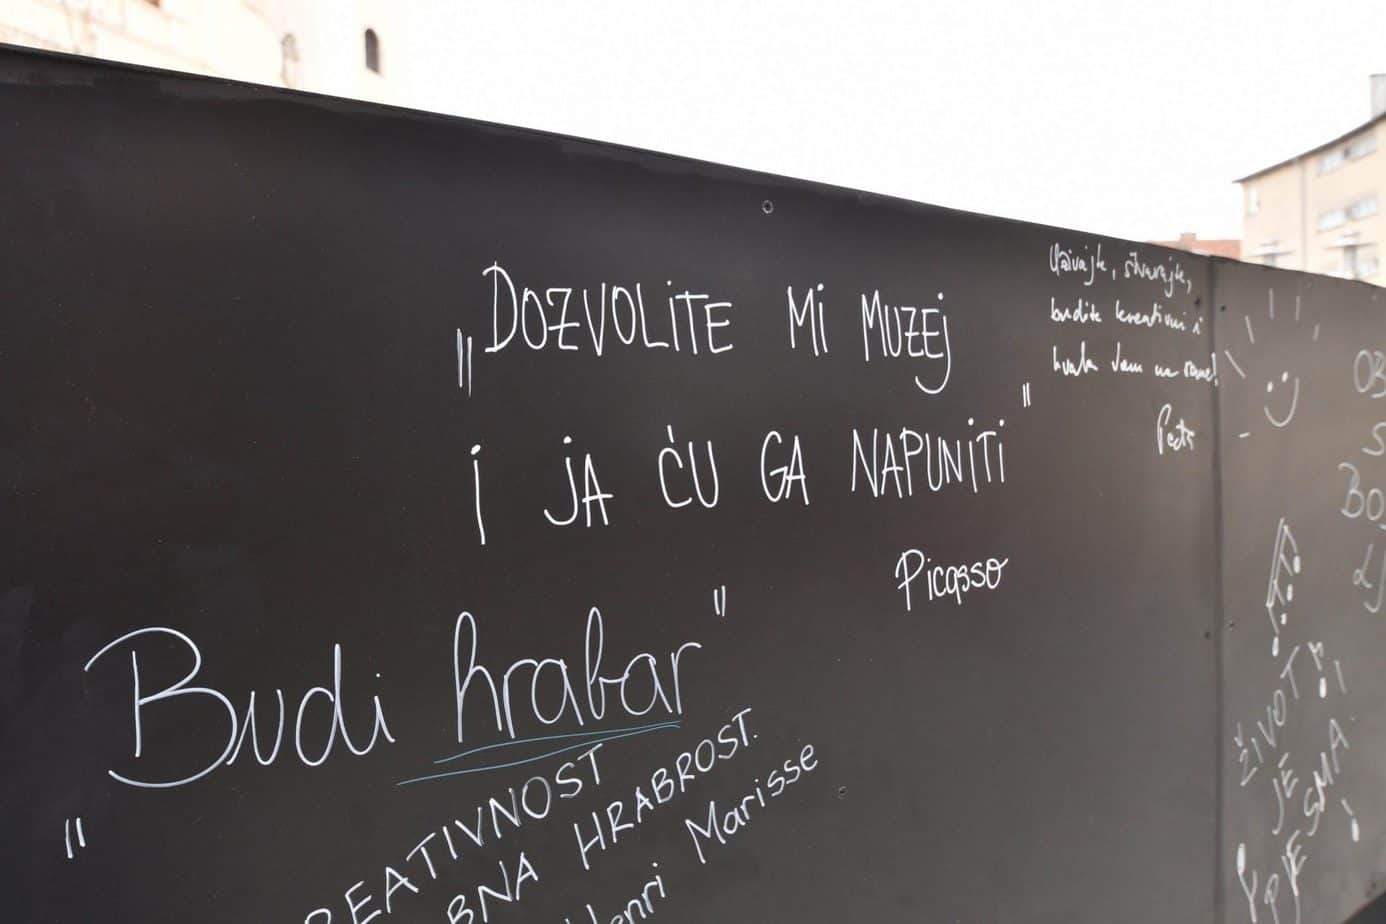 „DOZVOLITE MI MUZEJ
I JA ĆU GA NAPUNITI"
Picasso
Uživajte, stvarajte,
budite kreativni i
hvala vam na
„Budi hrabar"
REATIVNOST
BNA HRABROST.
Henri Marisse
ŽIVOT
JE
PJESMA!
OB
S
BO